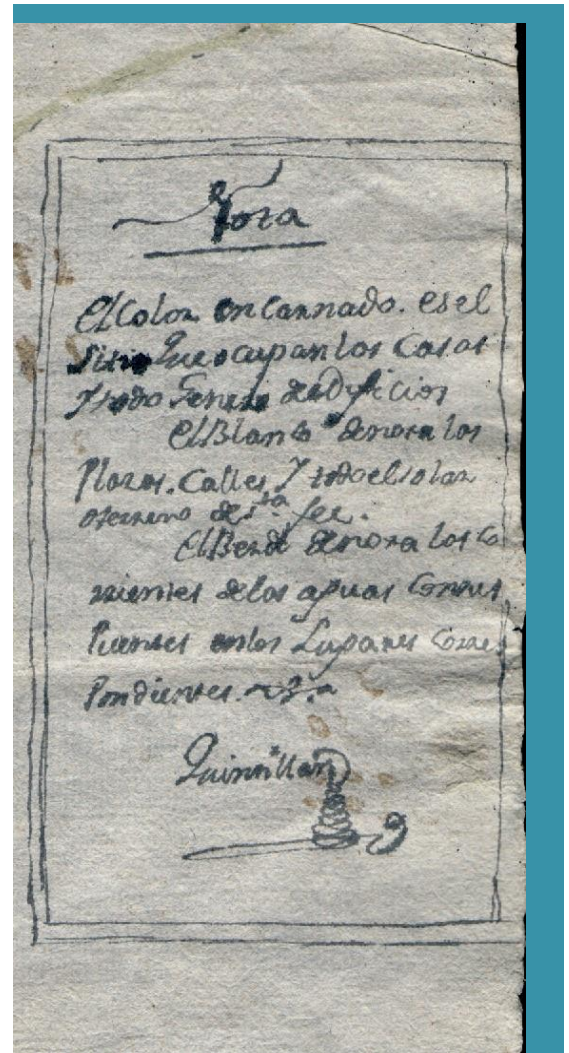 Nota
El Color encarnado. es el
Sitio Que ocupan los Casas
Y todo Genero de Dyficios
El Blanco denota los
Plazas. Calles Y todo el solar
oterreno de S.ta fee.
El Berde denota los Co
rrientes de las aguas Con sus
Puentes en los Lugares Corres
Pondientes.
Quintillan